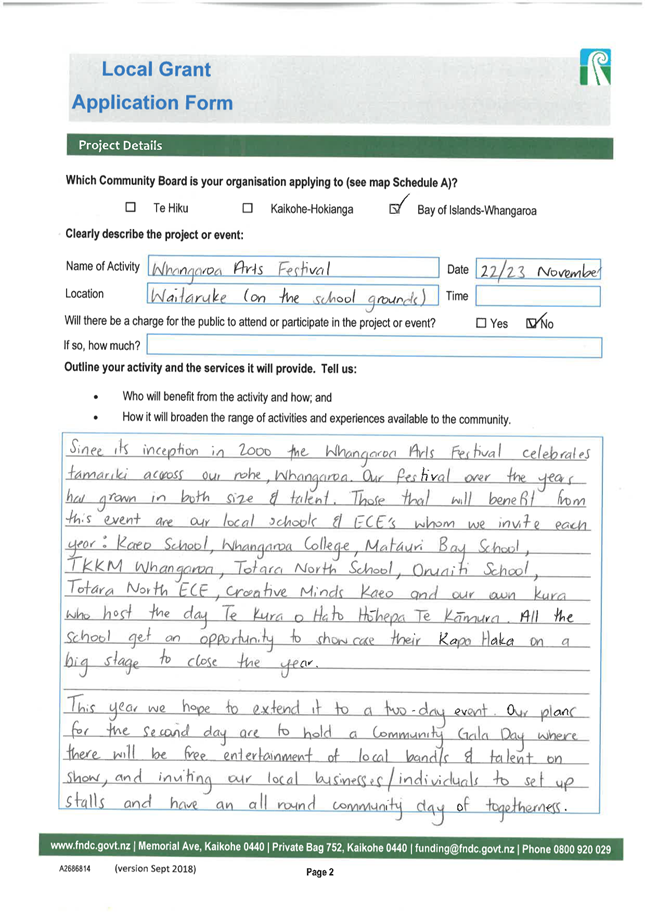 Local Grant
Application Form
Project Details
Which Community Board is your organisation applying to (see map Schedule A)?
☐ Te Hiku ☐ Kaikohe-Hokianga ☑ Bay of Islands-Whangaroa
Clearly describe the project or event:
Name of Activity Whangaroa Arts Festival Date 22/23 November
Location Waitaruke (on the school grounds) Time
Will there be a charge for the public to attend or participate in the project or event? ☐ Yes ☑ No
If so, how much?
Outline your activity and the services it will provide. Tell us:
• Who will benefit from the activity and how; and
• How it will broaden the range of activities and experiences available to the community.
Since its inception in 2000 the Whangaroa Arts Festival celebrates
tamariki across our rohe, Whangaroa. Our festival over the years
has grown in both size & talent. Those that will benefit from
this event are our local schools & ECE's whom we invite each
year: Kaeo School, Whangaroa College, Matauri Bay School,
TKKM Whangaroa, Totara North School, Oruaiti School,
Totara North ECE, Creative Minds Kaeo and our own kura
who host the day Te Kura o Hato Hōhepa Te Kāmura. All the
school get an opportunity to showcase their Kapa Haka on a
big stage to close the year.
This year we hope to extend it to a two-day event. Our plans
for the second day are to hold a Community Gala Day where
there will be free entertainment of local band/s & talent on
show, and inviting our local businesses/individuals to set up
stalls and have an all round community day of togetherness.
www.fndc.govt.nz | Memorial Ave, Kaikohe 0440 | Private Bag 752, Kaikohe 0440 | funding@fndc.govt.nz | Phone 0800 920 029
A2686814 (version Sept 2018) Page 2